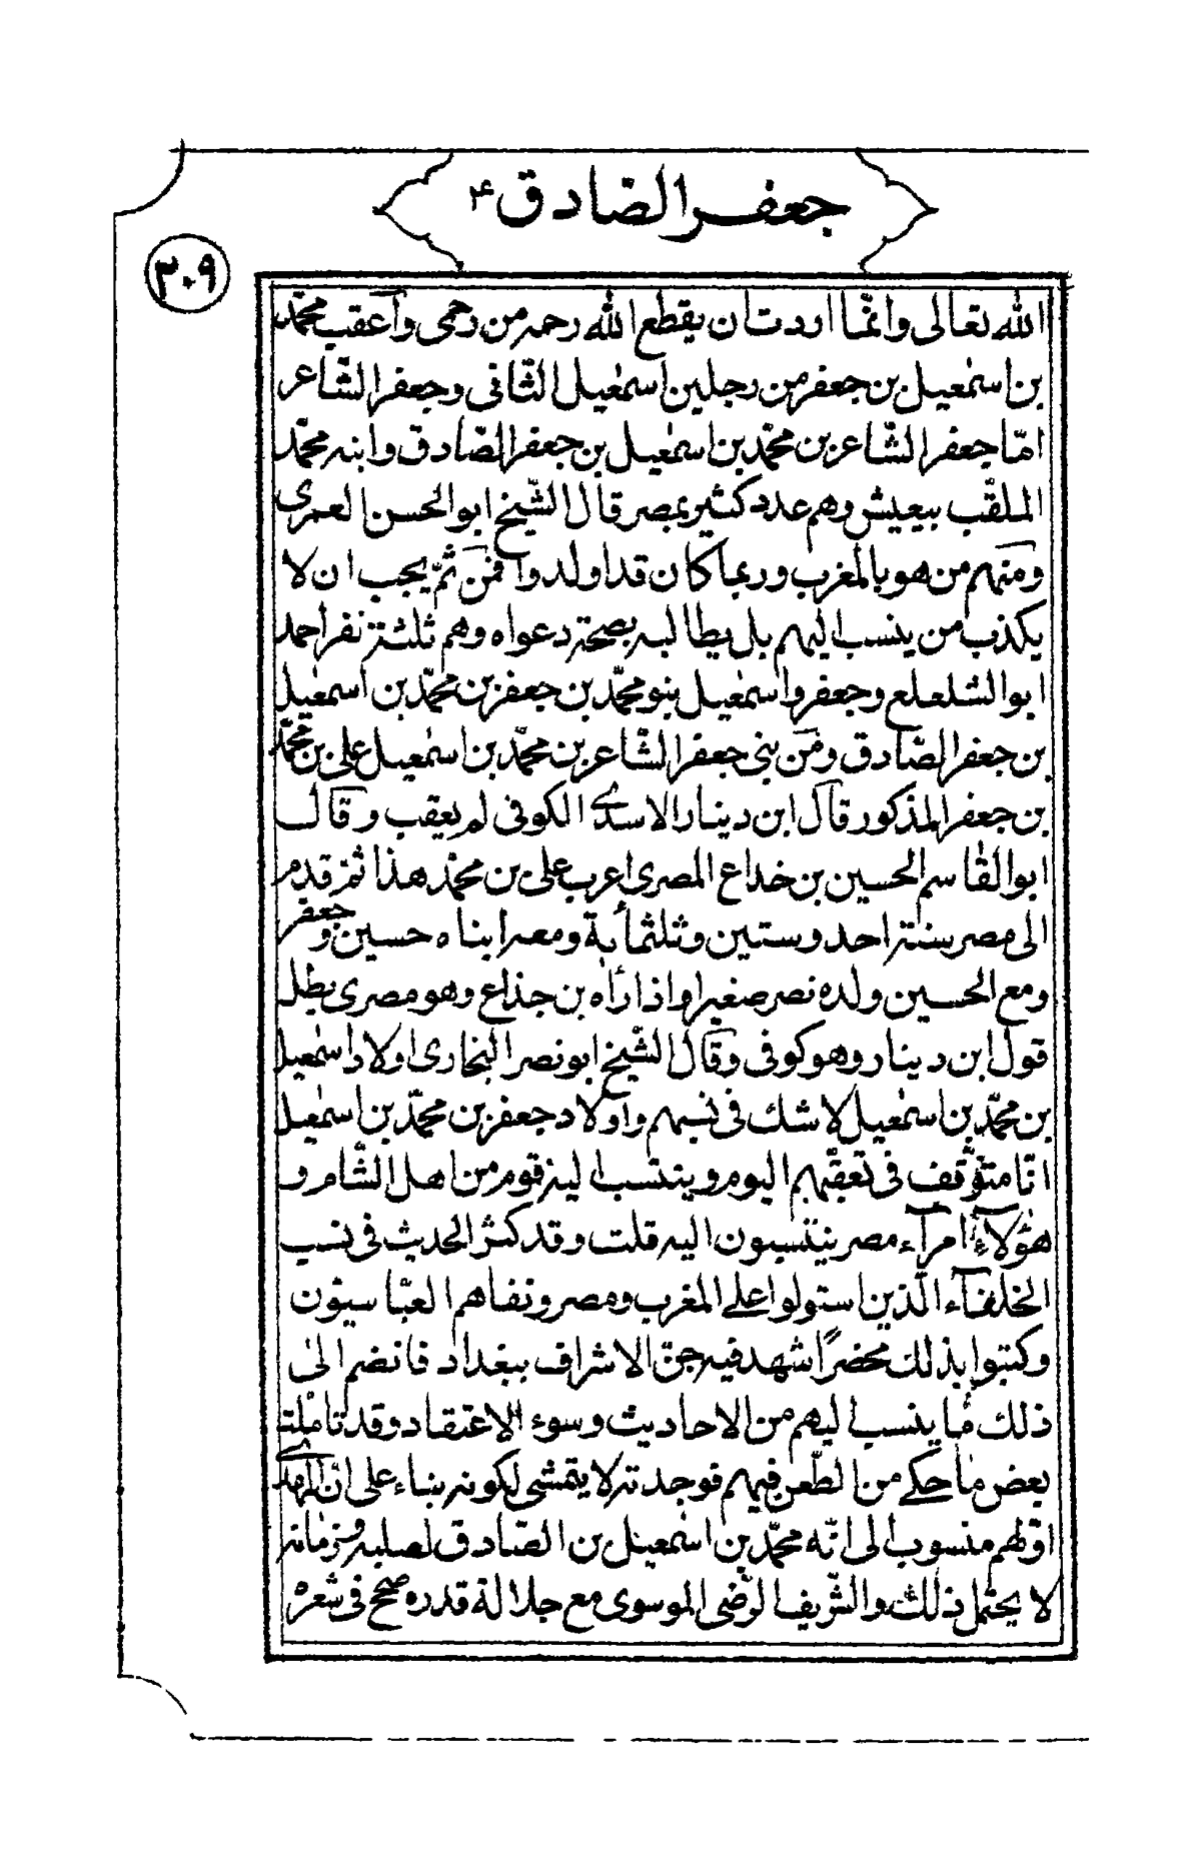 جعفر الصّادق ع
٣٠٩
الله تعالى وانّما اردت ان يقطع الله رحمه من رحمى وآعقب محمّد
بن اسمعيل بن جعفر من رجلين اسمعيل الثّانى وجعفر الشّاعر
امّا جعفر الشّاعر بن محمّد بن اسمعيل بن جعفر الصّادق وابنه محمّد
الملقّب ببعيش وهم عدد كثير بمصر قال الشّيخ ابو الحسن العمرى
ومنهم من هو بالمغرب وربما كان قد اولدوا فمن ثمّ يجب ان لا
يكذب من ينسب اليهم بل يطالبه بصحة دعواه وهم ثلثة نفر احمد
ابو الشلعلع وجعفر واسمعيل بنو محمّد بن جعفر بن محمّد بن اسمعيل
بن جعفر الصّادق ومن بنى جعفر الشّاعر بن محمّد بن اسمعيل على بن محمّد
بن جعفر المذكور قال ابن دينار الاسدى الكوفى لم يعقب وقال
ابو القاسم الحسين بن خداع المصرى اعرب على بن محمّد هذا ثم قدم
الى مصر سنة احد وستين وثلثمأية ومعه ابناه حسين و جعفر
ومع الحسين ولده نصر صغيرا واذا رأه بن جذاع وهو مصرى بطل
قول ابن دينار وهو كوفى وقال الشّيخ ابو نصر البخارى اولاد اسمعيل
بن محمّد بن اسمعيل لا شك فى نسبهم وآولاد جعفر بن محمّد بن اسمعيل
انّا متوّقف فى تعقبّهم اليوم وينتسب اليه قوم من اهل الشّام و
هؤلآء امرآء مصر ينتسبون اليه قلت وقد كثر الحديث فى نسب
الخلفآء الّذين استولوا على المغرب ومصر ونفاهم العبّاسيّون
وكتبوا بذلك محضرًا شهد فيه جلّ الاشراف ببغداد فانضم الى
ذلك ما ينسب اليهم من الاحاديث وسوء الاعتقاد وقد تاملت
بعض ما حكى من الطّعن فيهم فوجدته لا يتمشى لكونه بناء على انّ المهدى
اوّلهم منسوب الى انّه محمّد بن اسمعيل بن الصّادق لصلبه وزمانه
لا يحتمل ذلك والشّريف الرّضى الموسوى مع جلالة قدره صحّح فى شعره